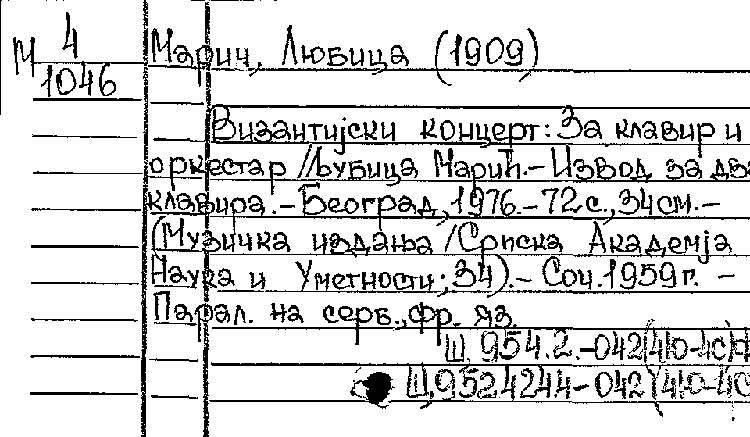 М 4
1046
Марич, Любица (1909)
Византијски концерт: За клавир и
оркестар // Љубица Марић.-Извод за два
клавира.-Београд, 1976.-72 с., 34 см.-
(Музичка издања / Српска Академја
Наука и Уметности; 34).-Соч. 1959 г. -
Парал. на серб., фр. яз.
Щ. 954.2.-042(4Ю-4С)
Щ.9524244-042 (4Ю-4С